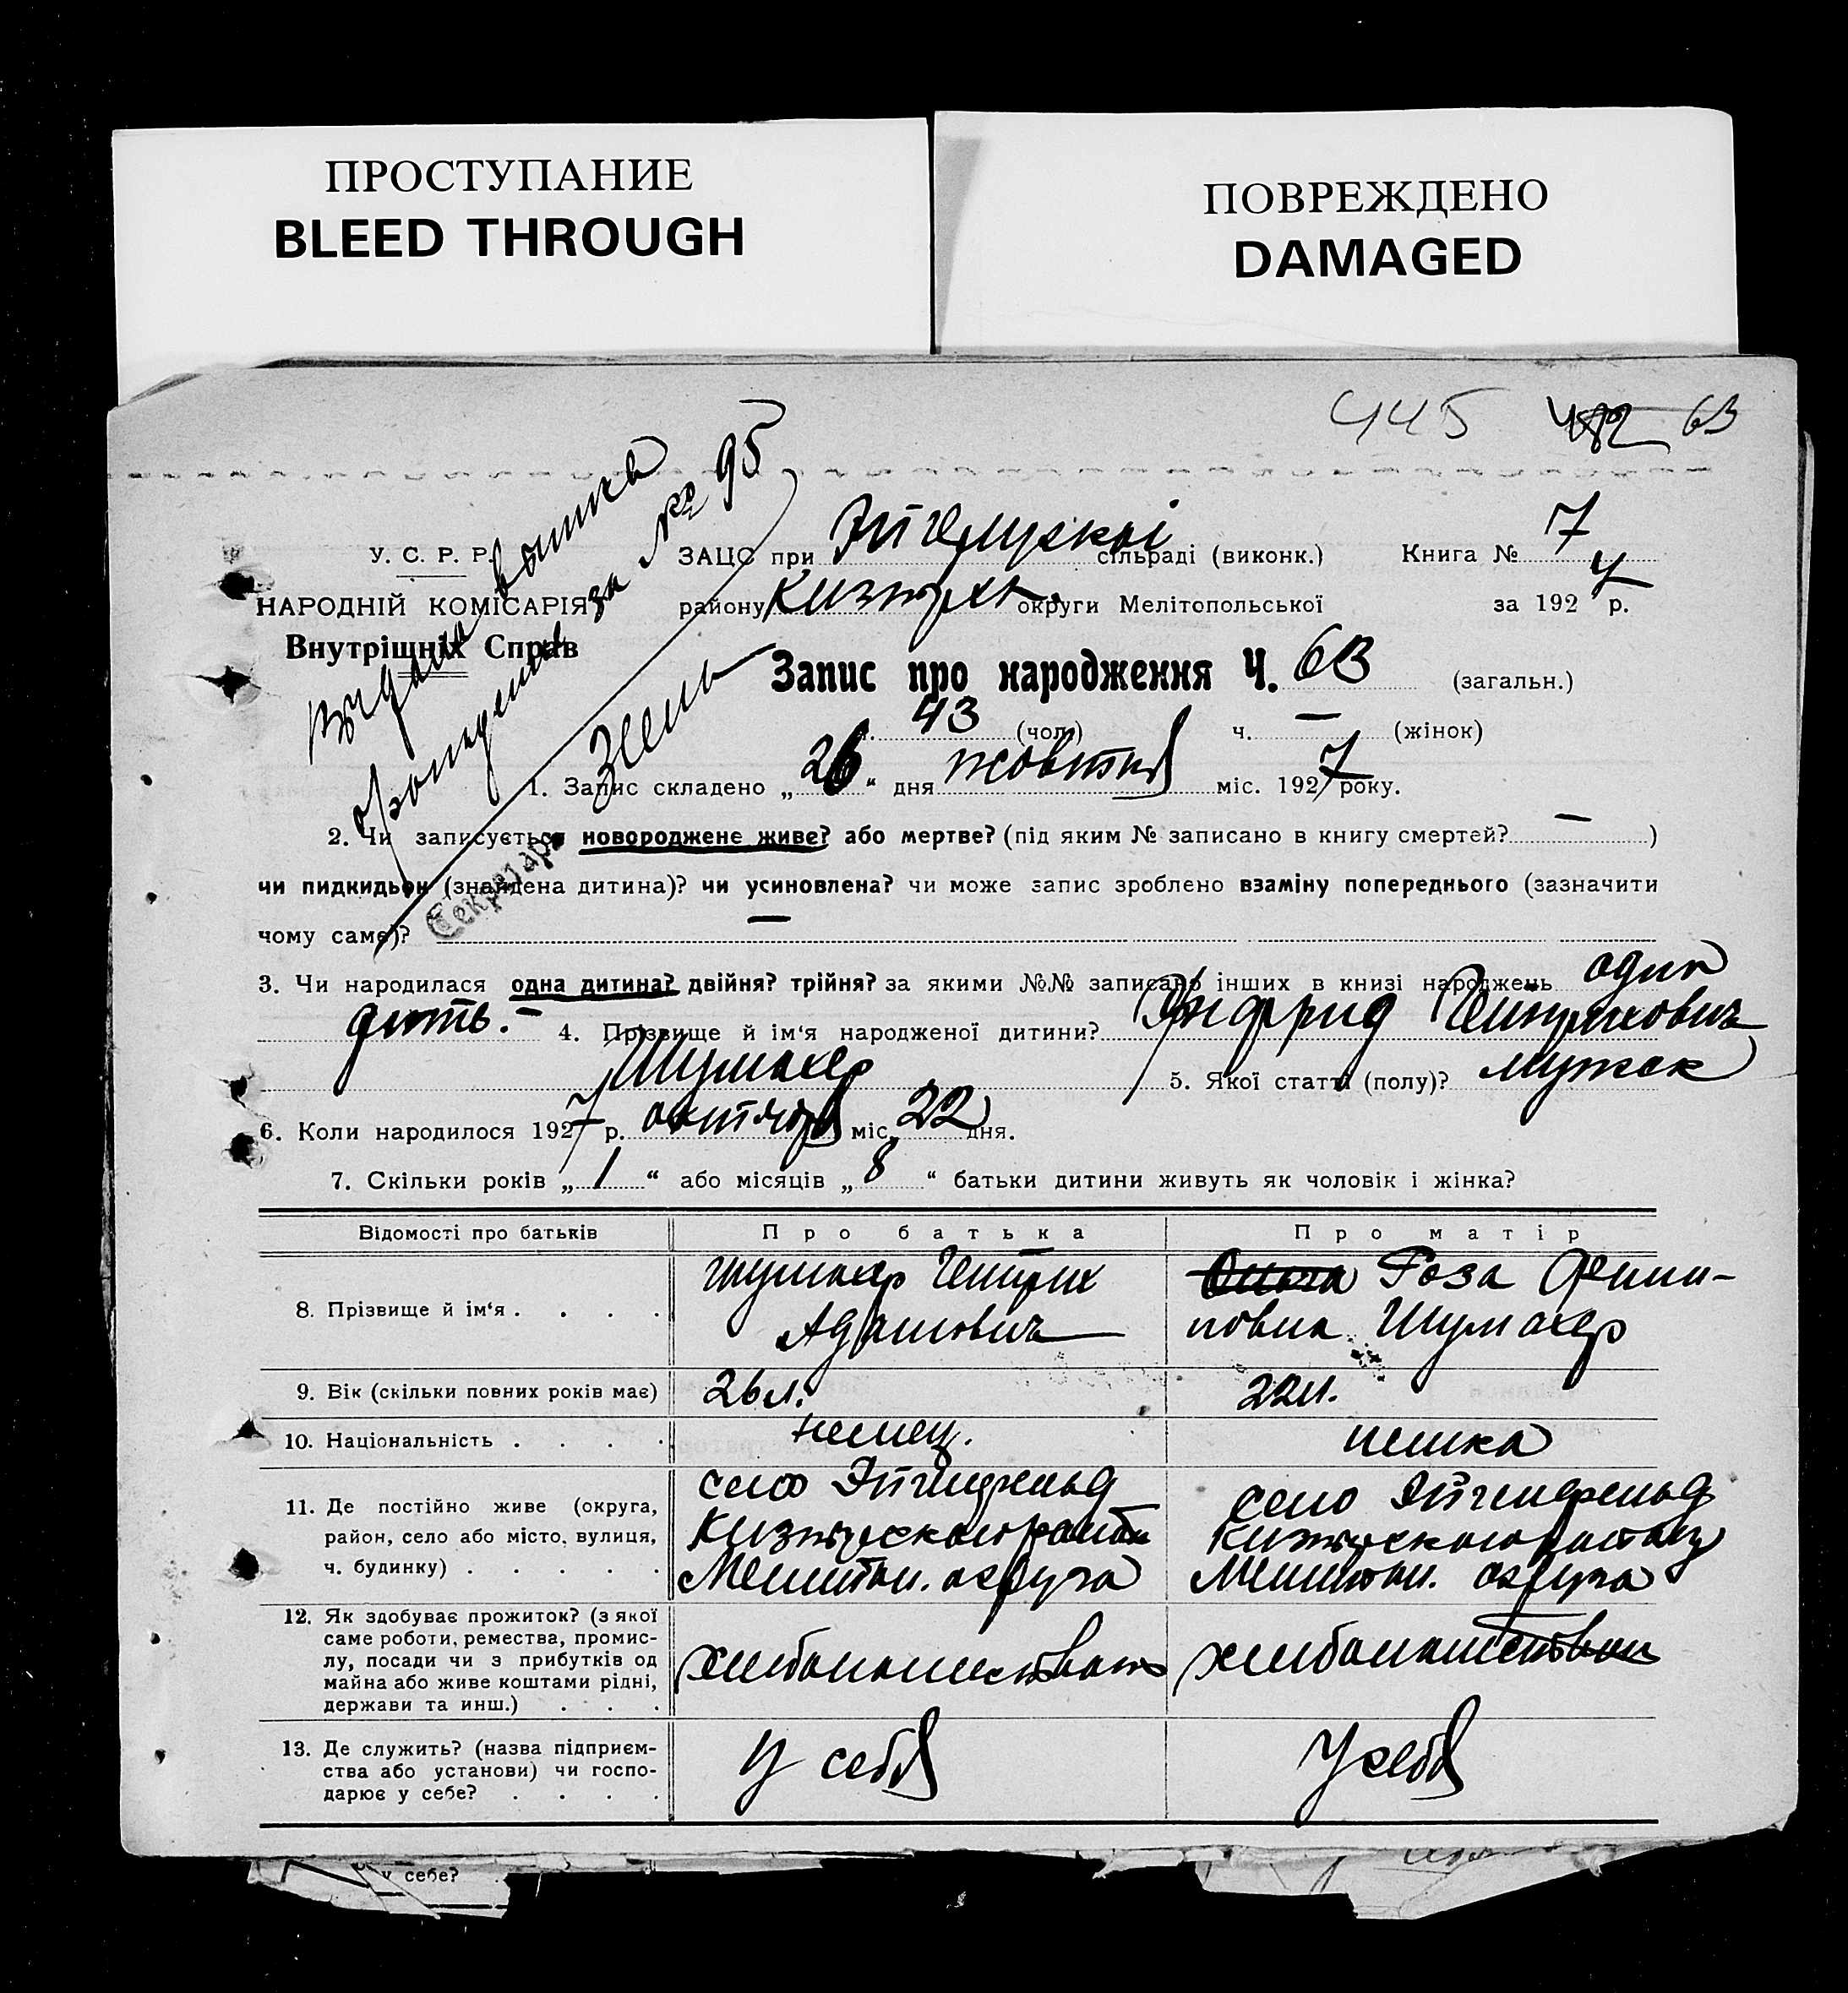 ПРОСТУПАНИЕ
BLEED THROUGH
ПОВРЕЖДЕНО
DAMAGED
445 482 63
за № 95
У. С. Р. Р.
ЗАЦС при сільраді (виконк.) Книга № 7
НАРОДНІЙ КОМІСАРІЯТ
району округи Мелітопольської за 1927 р.
Внутрішніх Справ
Запис про народження Ч. 63 (загальн.)
ч. 43 (чол.) ч. — (жінок)
1. Запис складено „26“ дня жовтня міс. 1927 року.
2. Чи записується новороджене живе? або мертве? (під яким № записано в книгу смертей? — )
чи пидкидьок (знайдена дитина)? чи усиновлена? чи може запис зроблено взаміну попереднього (зазначити
чому саме)? —
Секретар
3. Чи народилася одна дитина? двійня? трійня? за якими №№ записано інших в книзі народжень один
дить. — 4. Прізвище й ім'я народженої дитини? Гейнрихович
Шумахер 5. Якої статті (полу)? мужск
6. Коли народилося 1927 р. октября міс. 22 дня.
7. Скільки років „ 1 “ або місяців „ 8 “ батьки дитини живуть як чоловік і жінка?
Відомості про батьків Про батька Про матір
8. Прізвище й ім'я . . . .
Шумахер Гейнрих
Адамович
Роза Филип-
повна Шумахер
9. Вік (скільки повних років має) 26 л. 22 л.
10. Національність . . . . немец. немка
11. Де постійно живе (округа,
район, село або місто, вулиця,
ч. будинку) . . . . .
село Эйгенфельд
Мелитоп. округа
село Эйгенфельд
Мелитоп. округа
12. Як здобуває прожиток? (з якої
саме роботи, ремества, промис-
лу, посади чи з прибутків од
майна або живе коштами рідні,
держави та инш.) . . .
хлебопашеством
хлебопашеством
13. Де служить? (назва підприєм-
ства або установи) чи госпо-
дарює у себе? . . . .
у себя
у себя
у себе?